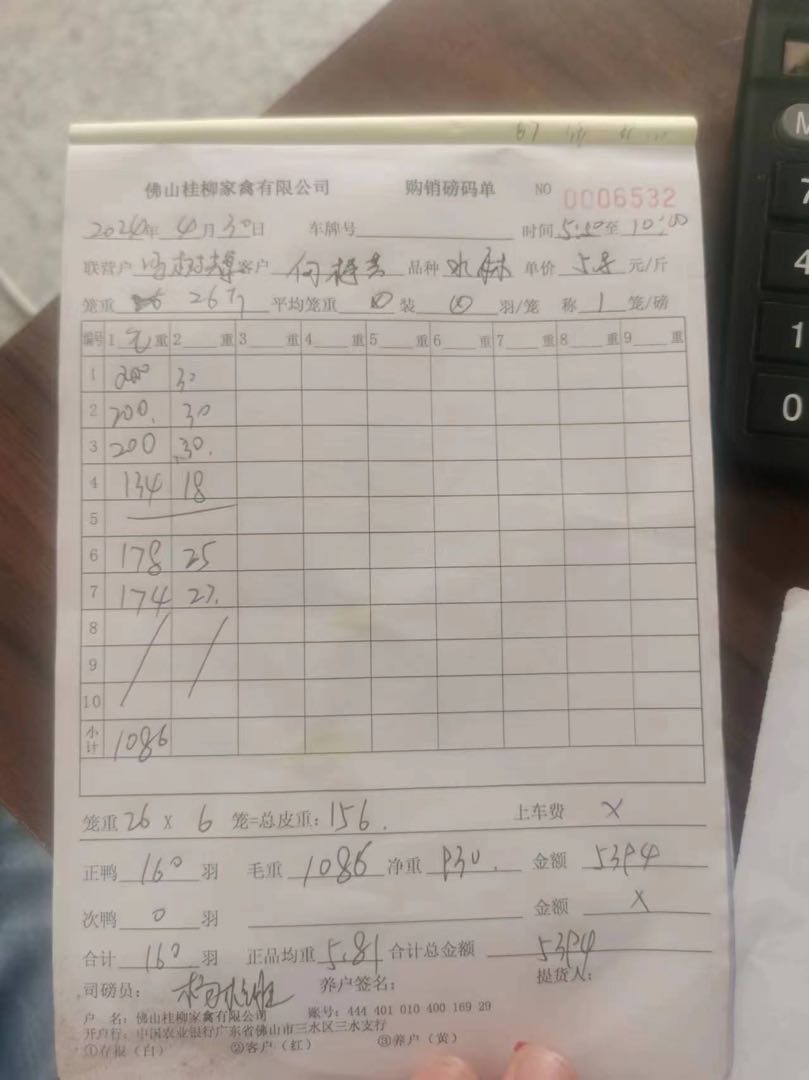 佛山桂柳家禽有限公司 购销磅码单 NO 0006532
2024年 4月30日 车牌号 时间5:50至10:00
联营户 客户 品种 水麻 单价 5.8 元/斤
笼重 26 平均笼重 装 羽/笼 称 1 笼/磅
编号 1 毛重 2 重 3 重 4 重 5 重 6 重 7 重 8 重 9 重
1 200 30
2 200. 30
3 200 30.
4 134 18
5
6 178 25
7 174 27.
8
9
10
小计 1086
笼重 26 X 6 笼=总皮重: 156. 上车费 X
正鸭 160 羽 毛重 1086 净重 930. 金额 5394
次鸭 0 羽 金额 X
合计 160 羽 正品均重 5.81 合计总金额 5394
司磅员: 养户签名: 提货人:
户 名: 佛山桂柳家禽有限公司 账号: 444 401 010 400 169 29
开户行: 中国农业银行广东省佛山市三水区三水支行
①存根（白） ②客户（红） ③养户（黄）
M
7
4
1
0